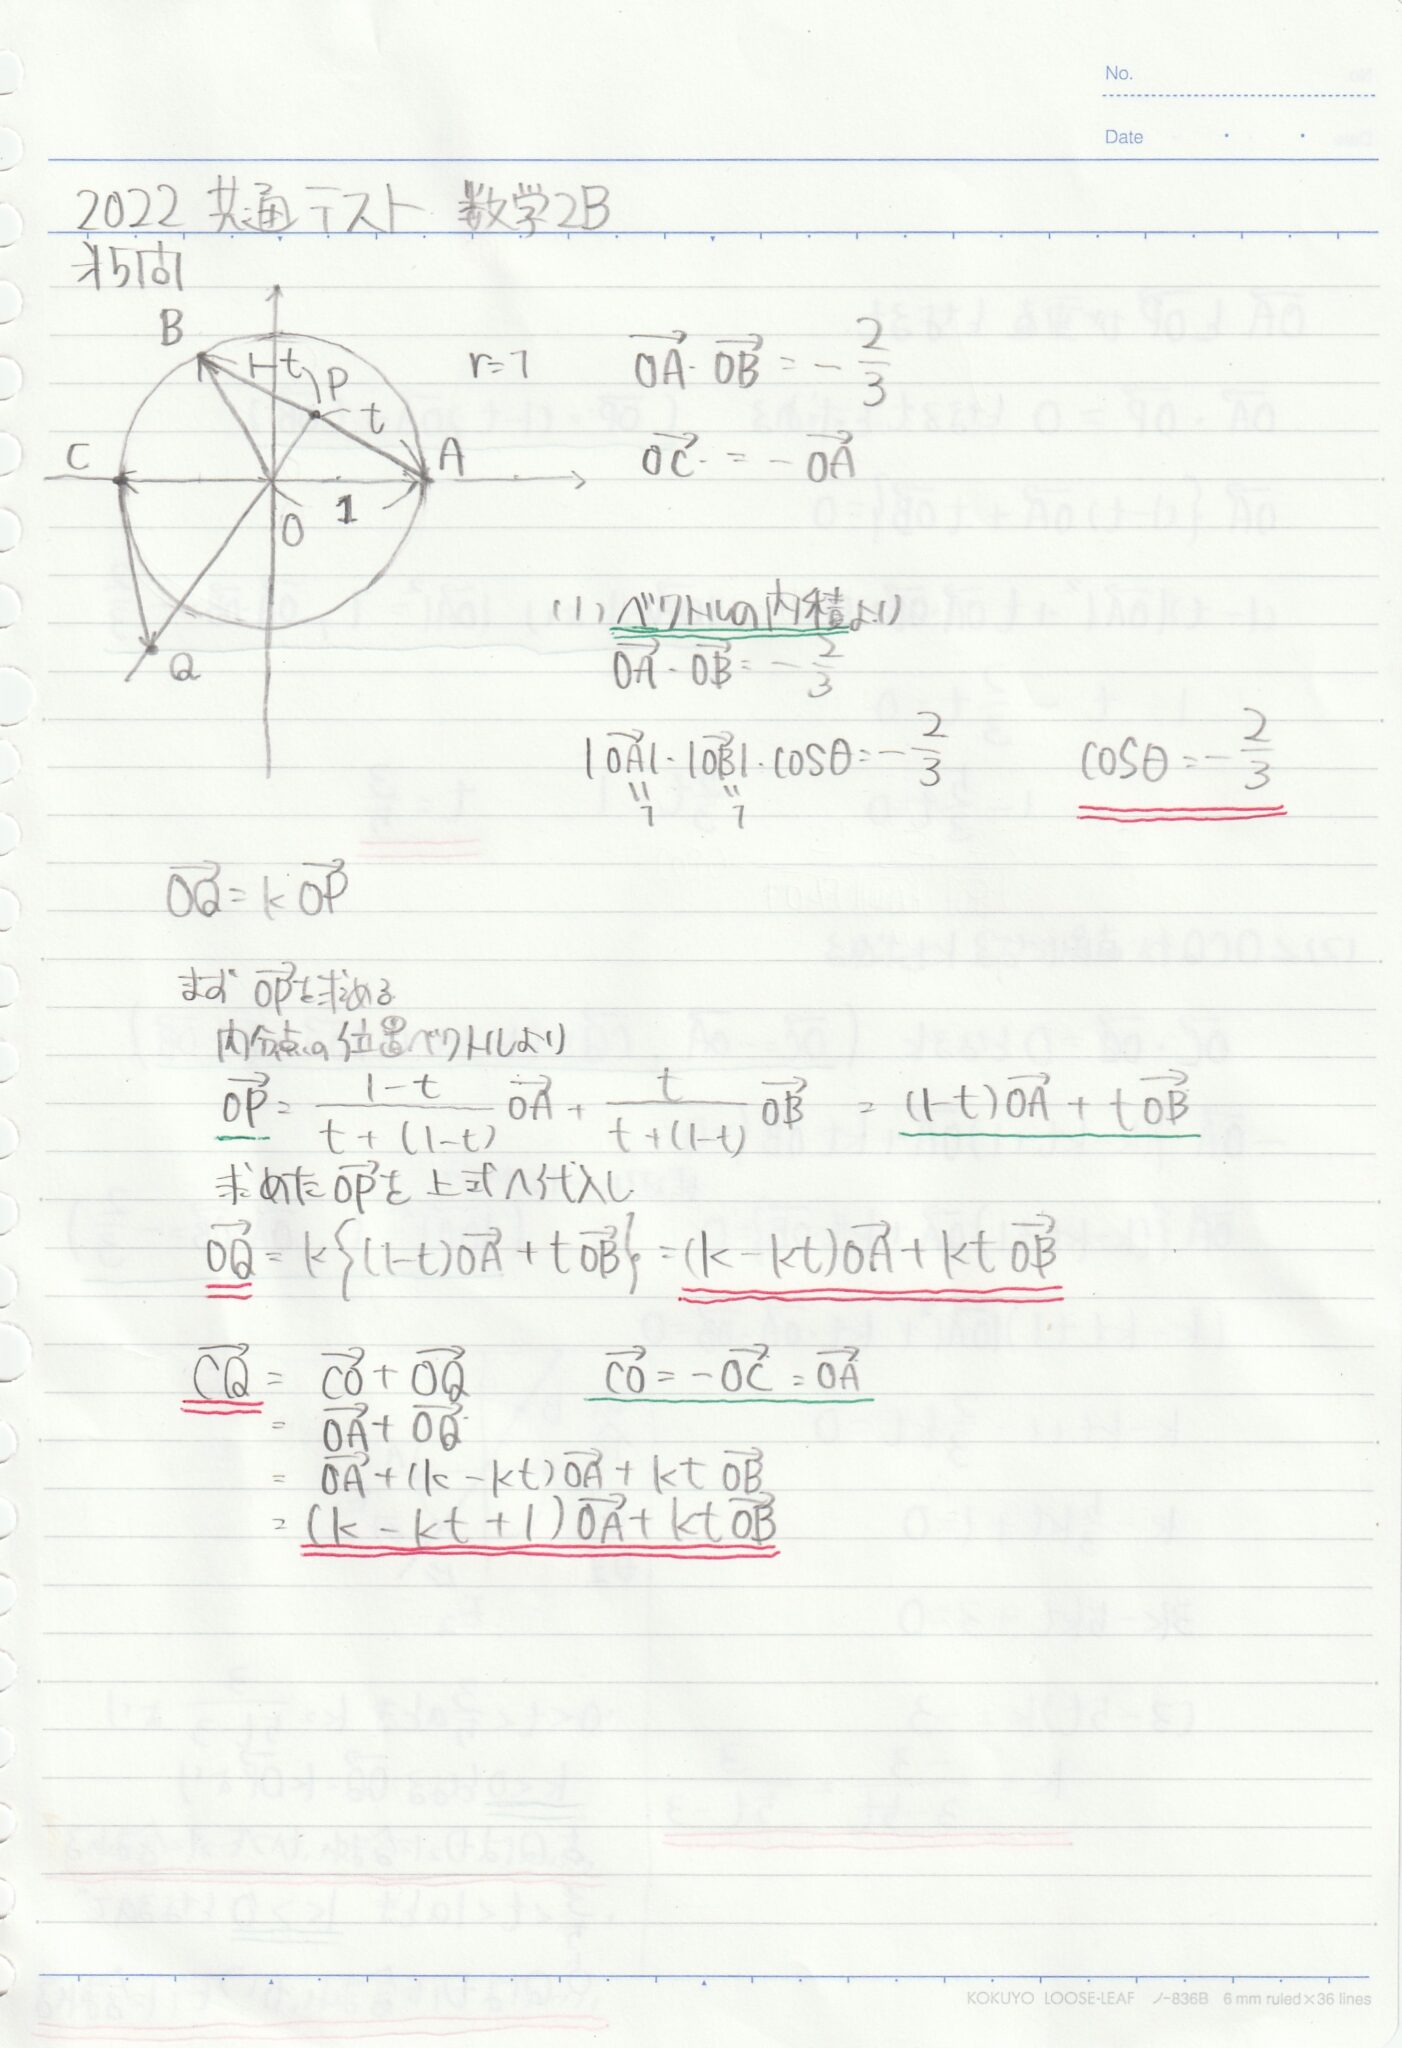 No.
Date
2022 共通テスト 数学2B
才5問
B
1-t
P
t
C
A
O
1
Q
r=1
OA→・OB→ = -2/3
OC→ = -OA→
(1) ベクトルの内積より
OA→・OB→ = -2/3
|OA→|・|OB→|・cosθ = -2/3
cosθ = -2/3
〃 〃
1 1
OQ→ = kOP→
まず OP→を求める
内分点の位置ベクトルより
OP→ = (1-t)/(t+(1-t)) OA→ + t/(t+(1-t)) OB→ = (1-t)OA→ + tOB→
求めたOP→を上式へ代入し
OQ→ = k{(1-t)OA→ + tOB→} = (k-kt)OA→ + ktOB→
CQ→ = CO→ + OQ→
CO→ = -OC→ = OA→
= OA→ + OQ→
= OA→ + (k-kt)OA→ + ktOB→
= (k-kt+1)OA→ + ktOB→
KOKUYO LOOSE-LEAF ノ-836B 6 mm ruled×36 lines